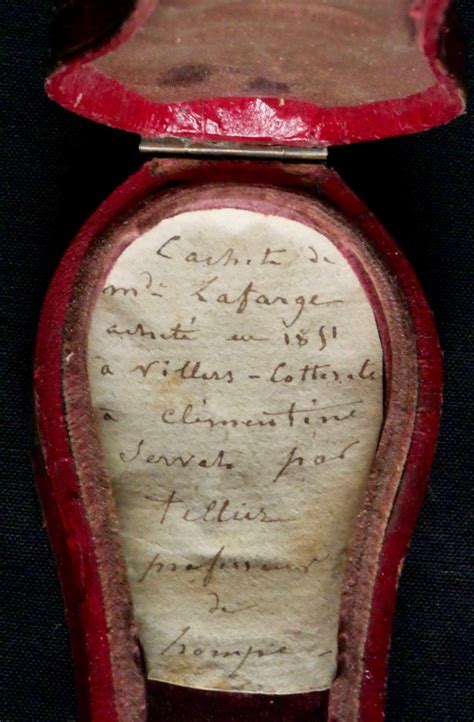 Cachet de
mde Lafarge
acheté en 1851
à Villers-Cotterets
à Clémentine
Servat par
Tellier
professeur
de